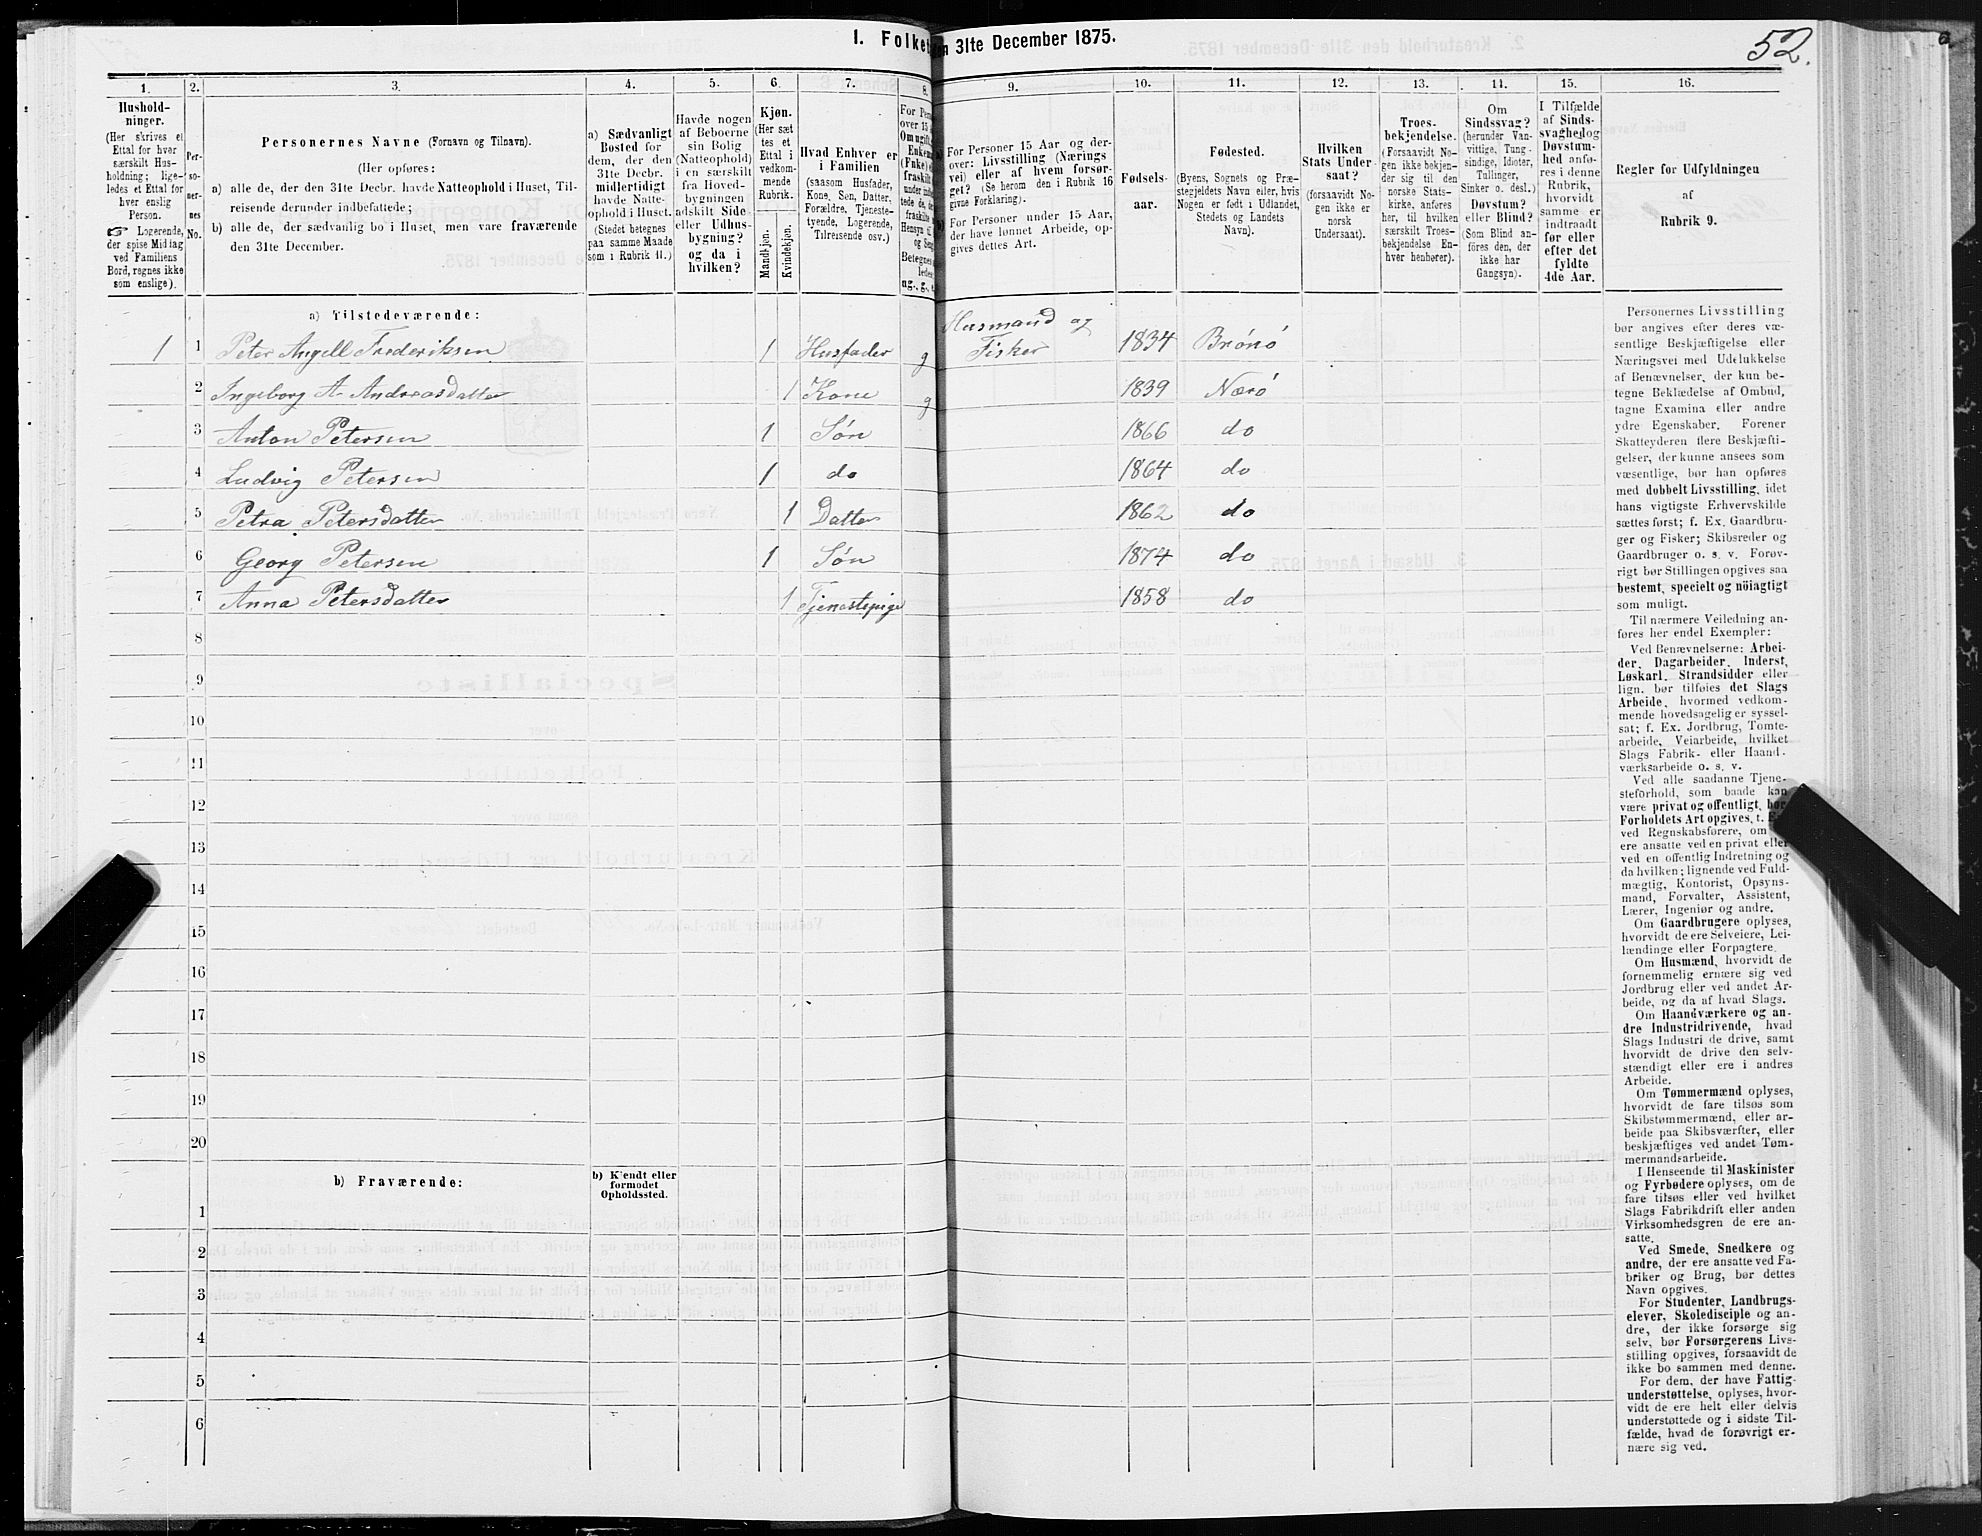 52.
I. Folket
en 31te December 1875.
1. 2. 3. 4. 5. 6. 7. 8. 9. 10. 11. 12. 13. 14. 15. 16.
Hushold-
ninger.
(Her skrives et
Ettal for hver
særskilt Hus-
holdning; lige-
ledes et Ettal for
hver enslig
Person.
☞ Logerende,
der spise Middag
ved Familiens
Bord, regnes ikke
som enslige).
Per-
so-
ner-
nes
No.
Personernes Navne (Fornavn og Tilnavn).
(Her opføres:
a) alle de, der den 31te Decbr. havde Natteophold i Huset, Til-
reisende derunder indbefattede;
b) alle de, der sædvanlig bo i Huset, men vare fraværende
den 31te December.
a) Sædvanligt
Bosted for
dem, der den
31te Decbr.
midlertidigt
havde Natte-
ophold i Huset.
(Stedet betegnes
paa samme Maade
som i Rubrik 11.)
Havde nogen
af Beboerne
sin Bolig
(Natteophold)
i en særskilt
fra Hoved-
bygningen
adskilt Side
eller Udhus-
bygning?
og da i
hvilken?
Kjøn.
(Her sæt
tes et
Ettal i
vedkom-
mende
Rubrik.
Mandkjøn.
Kvindekjøn.
Hvad Enhver er
i Familien
(saasom Husfader,
Kone, Søn, Datter,
Forældre, Tjeneste-
tyende, Logerende,
Tilreisende osv.)
For Pers
over 15
Om ugift,
Enkem
(Enke) e
fraskilt
ug., g., e.
For Personer 15 Aar og der-
over: Livsstilling (Nærings
vei) eller af hvem forsør-
get? (Se herom den i Rubrik 16
givne Forklaring).
b) For Personer under 15 Aar,
der have lønnet Arbeide, op-
gives dettes Art.
Fødsels-
aar.
Fødested.
(Byens, Sognets og Præ-
stegjeldets Navn eller, hvis
Nogen er født i Udlandet,
Stedets og Landets
Navn).
Hvilken
Stats Under-
saat?
(forsaavidt No-
gen ikke er
norsk
Undersaat).
Troes-
bekjendelse.
(Forsaavidt No-
gen ikke bekjen-
der sig til den
norske Stats-
kirke, anføres
her, til hvilken
særskilt Troes-
bekjendelse En-
hver henhører).
Om
Sindssvag?
(herunder Van-
vittige, Tung-
sindige, Idioter,
Tullinger,
Sinker o. desl.)
Døvstum?
eller Blind?
(Som Blind an-
føres den, der
ikke har
Gangsyn).
I Tilfælde
af Sinds-
svaghed og
Døvstum-
hed anfø-
res i denne
Rubrik,
hvorvidt
samme er
indtraadt
før eller
efter det
fyldte
4de Aar.
Regler for Udfyldningen
af
Rubrik 9.
a) Tilstedeværende:
1 1 Peter Angell Frederiksen 1 Husfader g Husmand og Fisker 1834 Brønø
2 Ingeborg A. Andreasdatter 1 Kone g 1839 Nærø
3 Anton Petersen 1 Søn 1866 do
4 Ludvig Petersen 1 do 1864 do
5 Petra Petersdatter 1 Datter 1862 do
6 Georg Petersen 1 Søn 1874 do
7 Anna Petersdatter 1 Tjenestepige 1858 do
8
9
10
11
12
13
14
15
16
17
18
19
20
b) Fraværende:
b) Kjendt eller
formodet
Opholdssted.
1
2
3
4
5
6
Personernes Livsstilling
bør angives efter deres væ-
sentlige Beskjæftigelse eller
Næringsvei med Udelukkelse
af Benævnelser, der kun be-
tegne Beklædelse af Ombud,
tagne Examina eller andre
ydre Egenskaber. Forener
Skatteyderen flere Beskjæfti-
gelser, der kunne ansees som
væsentlige, bør han opføres
med dobbelt Livsstilling, idet
hans vigtigste Erhvervskilde
sættes først; f. Ex. Gaardbru-
ger og Fisker; Skibsreder og
Gaardbruger o. s. v. Forøv-
rigt bør Stillingen opgives saa
bestemt, specielt og nöiagtigt
som muligt.
Til nærmere Veiledning an-
føres her endel Exempler:
Ved Benævnelserne: Arbei-
der, Dagarbeider, Inderst,
Løskarl, Strandsidder eller
lign. bør tilføies det Slags
Arbeide, hvormed vedkom-
mende hovedsagelig er syssel-
sat; f. Ex. Jordbrug, Tomte-
arbeide, Veiarbeide, hvilket
Slags Fabrik- eller Haand-
værksarbeide o. s. v.
Ved alle saadanne Tjene-
steforhold, som baade kan
være privat og offentligt, bør
Forholdets Art opgives, t.
ved Regnskabsførere, om
ere ansatte ved en privat eller
ved en offentlig Indretning og
da hvilken; lignende ved Fuld-
mægtig, Kontorist, Opsyns-
mand, Forvalter, Assistent,
Lærer, Ingeniør og andre.
Om Gaardbrugere oplyses,
hvorvidt de ere Selveiere, Lei-
lændinge eller Forpagtere.
Om Husmænd, hvorvidt de
fornemmelig ernære sig ved
Jordbrug eller ved andet Ar-
beide, og da af hvad Slags.
Om Haandværkere og an-
dre Industridrivende, hvad
Slags Industri de drive, samt
hvorvidt de drive den selv-
stændigt eller ere i andres
Arbeide.
Om Tømmermænd oplyses,
hvorvidt de fare tilsøs som
Skibstømmermænd, eller ar-
beide paa Skibsværfter, eller
beskjæftiges ved andet Tøm-
mermandsarbeide.
I Henseende til Maskinister
og Fyrbødere oplyses, om de
fare tilsøs eller ved hvilket
Slags Fabrikdrift eller anden
Virksomhedsgren de ere an-
satte.
Ved Smede, Snedkere og
andre, der ere ansatte ved Fa-
briker og Brug, bør dettes
Navn opgives.
For Studenter, Landbrugs-
elever, Skoledisciple og an-
dre, der ikke forsørge sig
selv, bør Forsørgerens Livs-
stilling opgives, forsaavidt de
ikke bo sammen med denne.
For dem, der have Fattig-
understøttelse, oplyses, hvor-
vidt de ere helt eller delvis
understøttede og i sidste Til-
fælde, hvad de forøvrigt er-
nære sig ved.